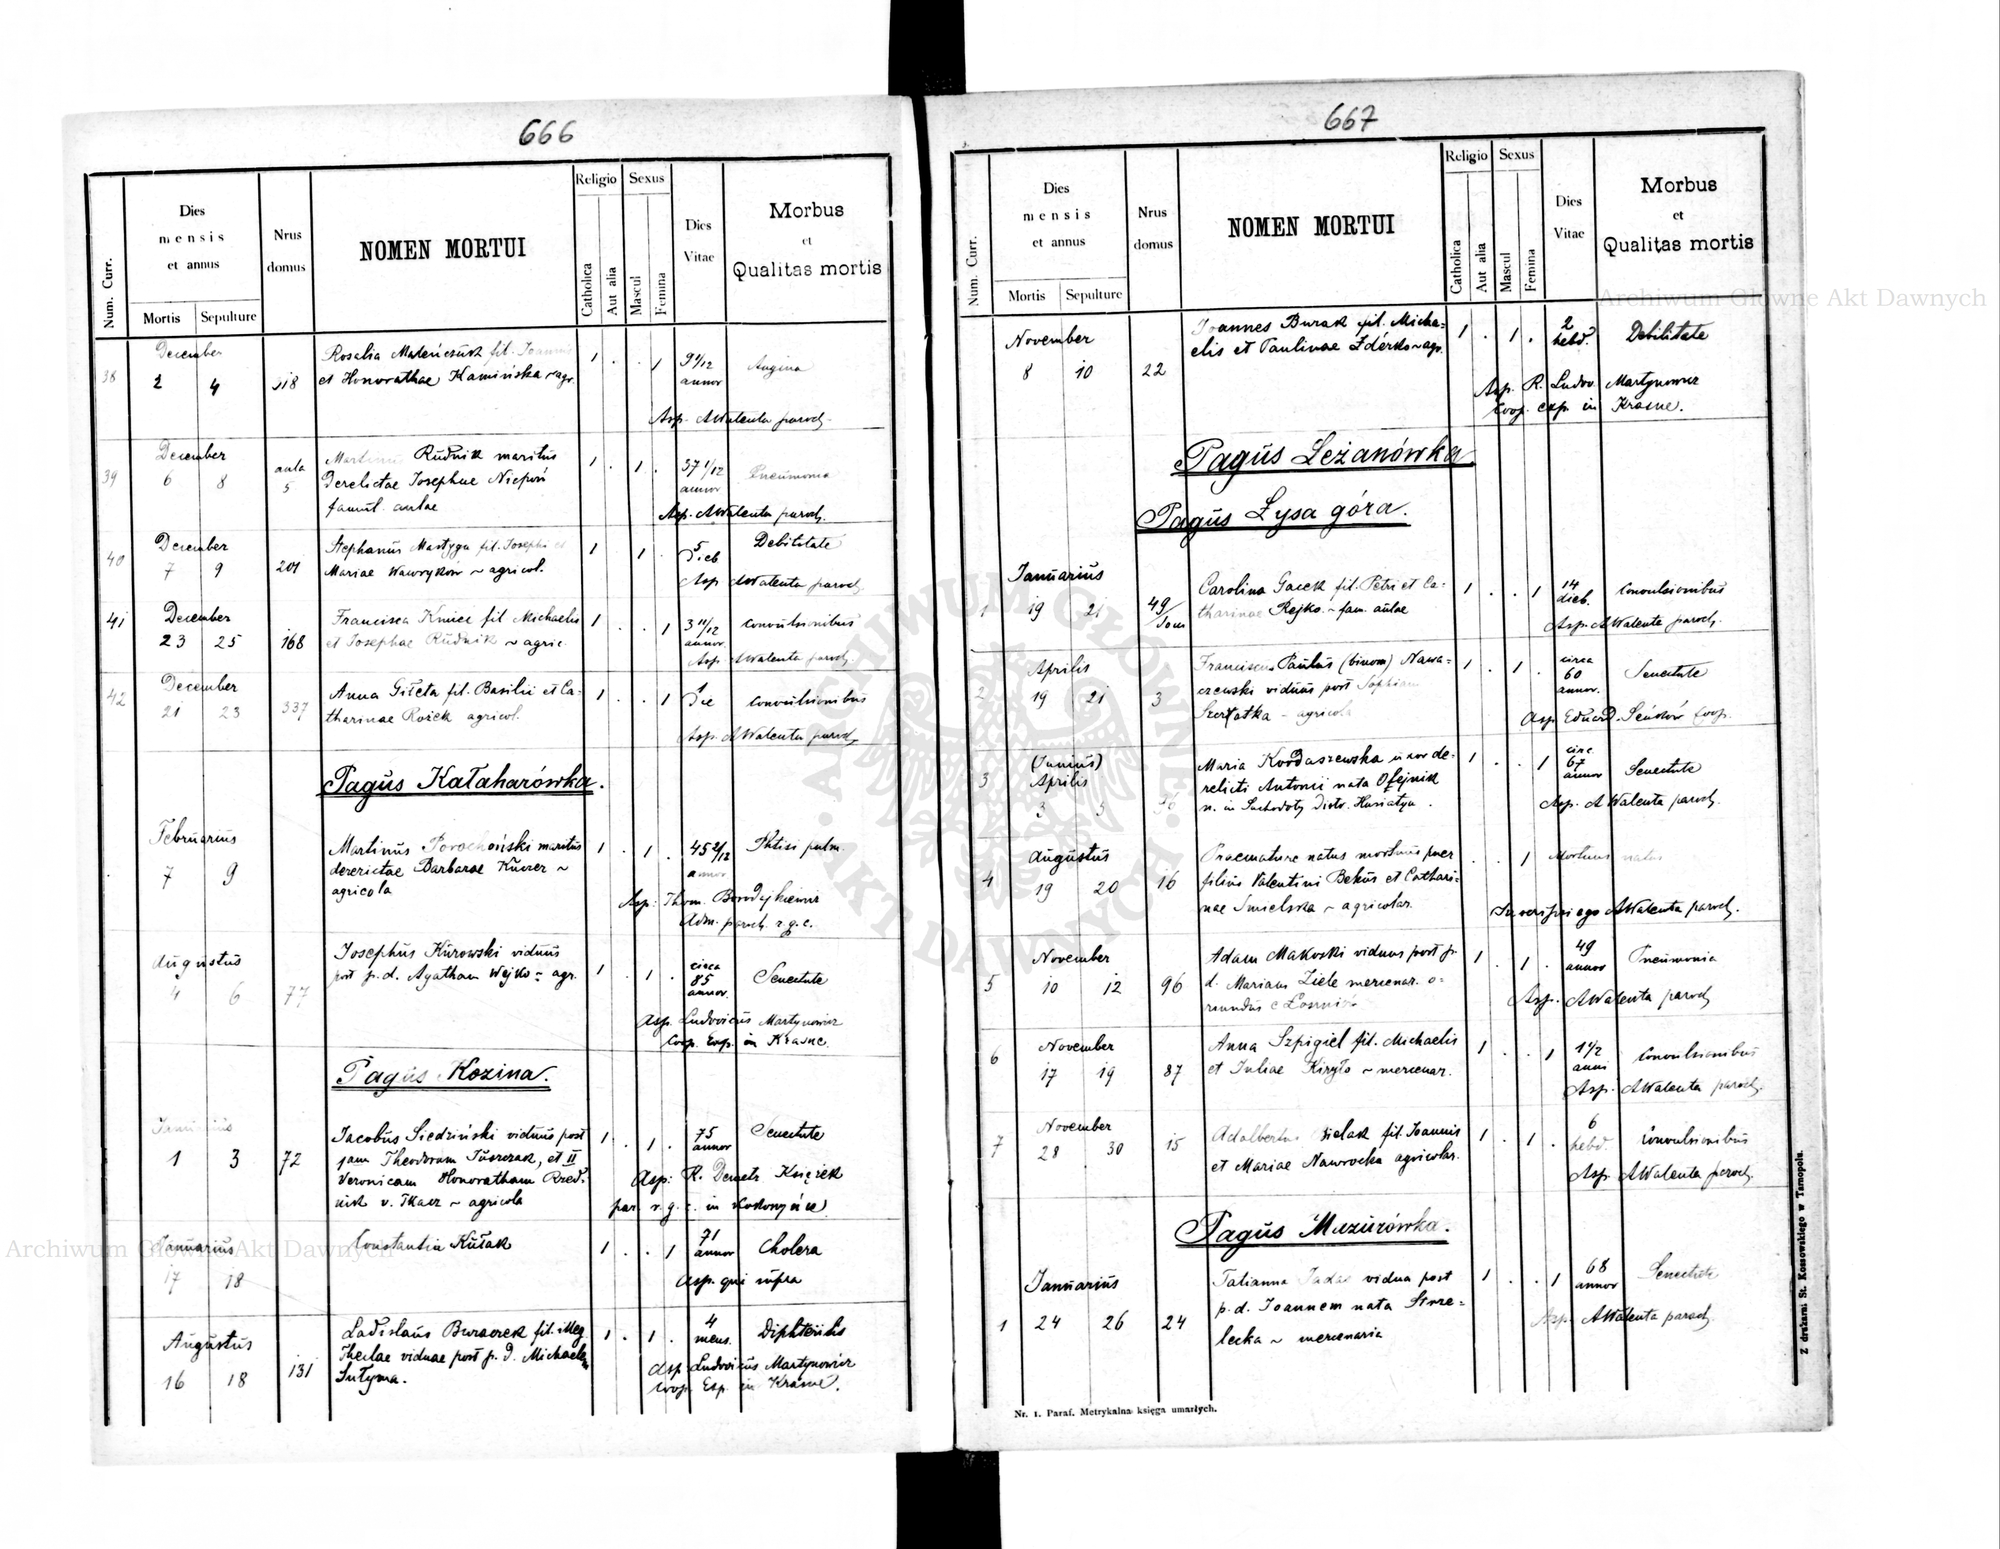 666
Num. Curr.
Dies
mensis
et annus
Mortis
Sepulture
Nrus
domus
NOMEN MORTUI
Religio
Catholica
Aut alia
Sexus
Mascul
Femina
Dies
Vitae
Morbus
et
Qualitas mortis
38 December 2 4 118
Rosalia Mateńczuk fil. Joannis 1 . . 1 9 4/12 annor Angina
et Honorathae Kamińska ~ agr.
Asp. AWalenta paroch.
39 December 6 8 aula 5
Martinus Rudnik maritus 1 . 1 . 37 1/12 annor Pneumonia
derelictae Josephae Niepoń
famul. aulae
Asp. AWalenta paroch.
40 December 7 9 201
Stephanus Mastyga fil. Josephi et 1 1 . 5 dieb Debilitate
Mariae Wawryków ~ agricol.
Asp AWalenta paroch.
41 December 23 25 168
Francisca Kmieć fil Michaelis 1 . . 1 3 11/12 annor. Convulsionibus
et Josephae Rudnik ~ agric.
Asp. AWalenta paroch.
42 December 21 23 337
Anna Giżeta fil. Basilii et Ca-
tharinae Rożek agricol. 1 . . 1 1 die Convulsionibus
Asp. AWalenta paroch.
Pagus Kałaharówka.
Februarius 7 9
Martinus Porochoński maritus 1 . 1 . 45 2/12 annor Phtisi pulm.
derelictae Barbarae
agricola
Asp: Thom. Borodajkiewicz
Adm. paroch. r.g.c.
Augustus 4 6 77
Josephus Kurowski viduus
post p. d. Agatham Wejko - agr. 1 . 1 . circa 85 annor. Senectute
Asp. Ludovicus Martynowicz
Coop. Exp. in Krasne.
Pagus Kozina.
Januarius 1 3 72
Jacobus Siedziński viduus post 1 . 1 . 75 annor Senectute
jam Theodoram Juszczak, et II
Veronicam Honoratham Rzed-
nik v. Tkacz ~ agricola
Asp: R. Demetr Księżek
par. r. g. c. in
Januarius 17 18
Constantia Kułak 1 . . 1 71 annor Cholera
Asp. qui supra
Augustus 16 18 131
Ladislaus Buraczek fil. illeg. 1 . 1 . 4 mens. Diphteritis
Theclae viduae post p. d. Michaelem
Sutyma.
Asp Ludovicus Martynowicz
Coop. Exp. in Krasne.
667
Num. Curr.
Dies
mensis
et annus
Mortis
Sepulture
Nrus
domus
NOMEN MORTUI
Religio
Catholica
Aut alia
Sexus
Mascul
Femina
Dies
Vitae
Morbus
et
Qualitas mortis
November 8 10 22
Joannes Burak fil. Micha- 1 . 1 . 2 hebd. Debilitate
elis et Paulinae Zdérko ~ agr.
Asp. R. Ludov. Martynowicz
Coop. exp. in Krasne.
Pagus Leżanówka
Pagus Łysa góra.
1 Januarius 19 21 49
Carolina Gacek fil. Petri et Ca- 1 . . 1 14 dieb. Convulsionibus
tharinae Rejko. ~ fam. aulae
Asp. AWalenta paroch.
2 Aprilis 19 21 3
Franciscus Paulus (binom) Nawa- 1 . 1 . circa 60 annor. Senectute
czewski viduus post Sophiam
Szerłatka - agricola
Asp Eduard. Coop.
3 (Junius) Aprilis 3 5
Maria Kordaszewska uxor de- 1 . . 1 circ. 67 annor Senectute
relicti Antonii nata Olejnik
n. in Suchodoły Distr. Husiatyn.
Asp. AWalenta paroch.
4 Augustus 19 20 16
Praemature natus mortuus puer . . 1 Mortuus natus
filius Valentini Bekus et Cathari-
nae Smielska ~ agricolar.
Inscripsi ego AWalenta paroch.
5 November 10 12 96
Adam Makoski viduus post p. 1 . 1 . 49 annor Pneumonia
d. Mariam Ziele mercenar. o-
riundus e
Asp. AWalenta paroch
6 November 17 19 87
Anna Szpigiel fil. Michaelis 1 . . 1 1 1/2 anni Convulsionibus
et Juliae Kiryło ~ mercenar.
Asp. AWalenta paroch.
7 November 28 30 15
Adalbertus Bielak fil. Joannis 1 . 1 . 6 hebd. Convulsionibus
et Mariae Nawrocka agricolar.
Asp. AWalenta paroch.
Pagus Mazurówka.
1 Januarius 24 26 24
Tatianna Jadas vidua post 1 . . 1 68 annor Senectute
p. d. Joannem nata Strze-
lecka ~ mercenaria
Asp. AWalenta paroch.
Nr. 1. Paraf. Metrykalna księga umarłych.
Z drukarni St. Kossowskiego w Tarnopolu.
Archiwum Główne Akt Dawnych
Archiwum Główne Akt Dawnych
ARCHIWUM GŁÓWNE AKT DAWNYCH